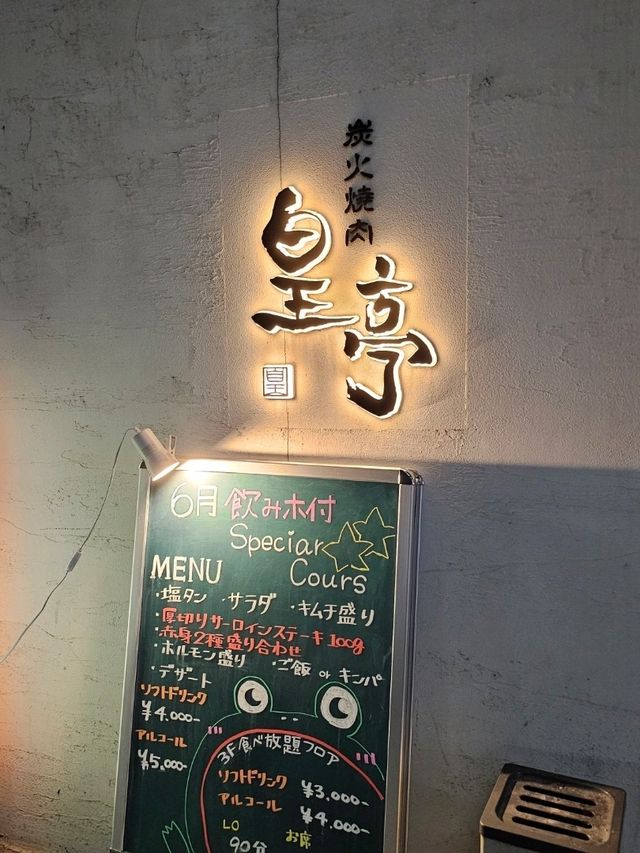 炭火焼肉
皇亭
皇
6月 飲み木付
Speciar
Cours
MENU
・塩タン ・サラダ ・キムチ盛り
・厚切りサーロインステーキ100g
・赤身2種盛り合わせ
・ホルモン盛り ・ご飯 or キンパ
・デザート
ソフトドリンク
¥4.000-
アルコール
¥5.000-
3F食べ放題フロア
ソフトドリンク ¥3.000-
アルコール ¥4.000-
LO お席
90分